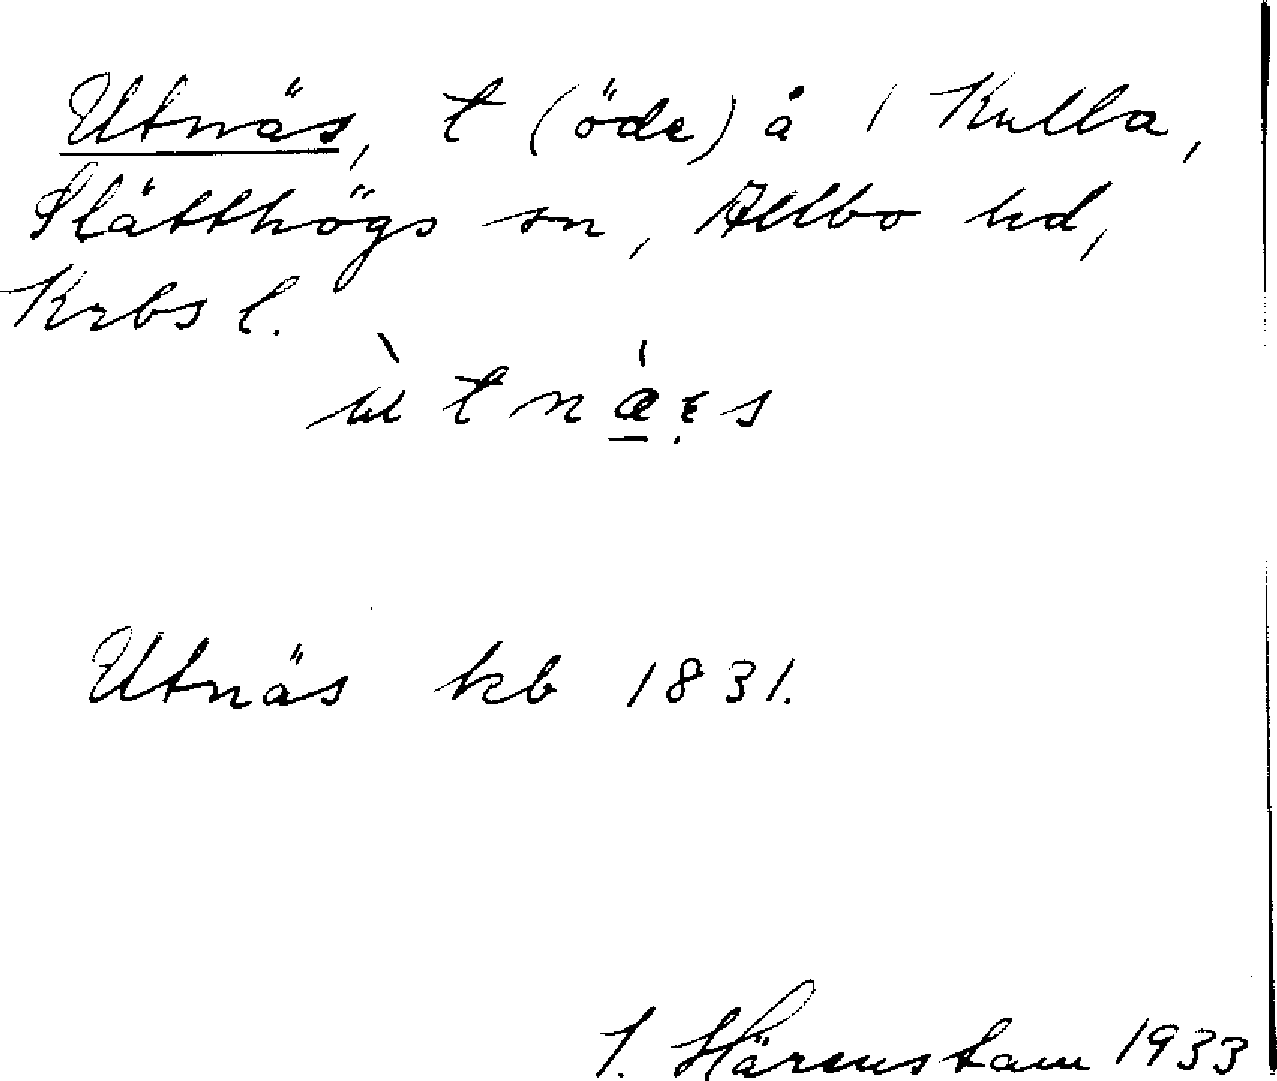 Utnäs, t (öde) å 1 Kulla,
Slätthögs sn, Allbo hd,
Krbs l.
ùtnǽ̱ꜫ̣s
Utnäs kb 1831.
I. Härenstam 1933